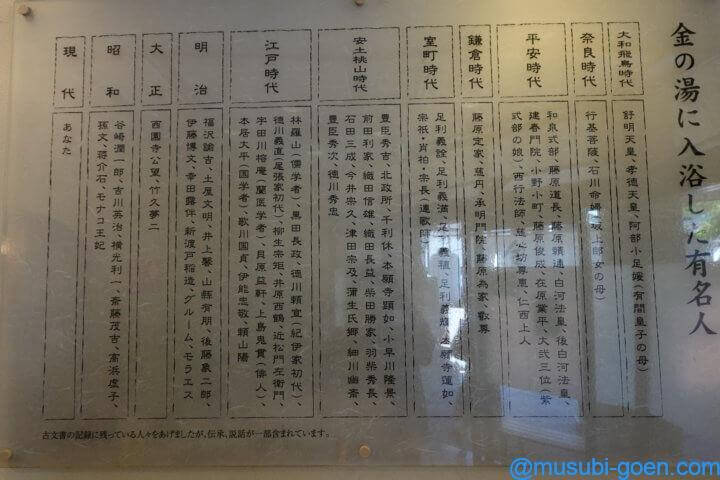 金の湯に入浴した有名人
大和飛鳥時代
舒明天皇、孝徳天皇、阿部小足媛(有間皇子の母)
奈良時代
行基菩薩、石川命婦(坂上郎女の母)
平安時代
和泉式部、藤原道長、藤原頼通、白河法皇、後白河法皇、
建春門院、小野小町、藤原俊成、在原業平、大弐三位(紫
式部の娘)、西行法師、慈心坊尊恵、仁西上人
鎌倉時代
藤原定家、慈円、承明門院、藤原為家、叡尊
室町時代
足利義詮、足利義満、足利義稙、足利義輝、本願寺蓮如、
宗祇・肖柏・宗長(連歌師)
安土桃山時代
豊臣秀吉、北政所、千利休、本願寺顕如、小早川隆景、
前田利家、織田信雄、織田長益、柴田勝家、羽柴秀長、
石田三成、今井宗久、津田宗及、蒲生氏郷、細川幽斎、
豊臣秀次、徳川秀忠
江戸時代
林羅山(儒学者)、黒田長政、徳川頼宣(紀伊家初代)、
徳川義直(尾張家初代)、柳生宗矩、井原西鶴、近松門左衛門、
宇田川榕庵(蘭医学者)、貝原益軒、上島鬼貫(俳人)、
本居大平(国学者)、歌川国貞、伊能忠敬、頼山陽
明治
福沢諭吉、土屋文明、井上馨、山縣有朋、後藤象二郎、
伊藤博文、幸田露伴、新渡戸稲造、グルーム、モラエス
大正
西園寺公望、竹久夢二
昭和
谷崎潤一郎、吉川英治、横光利一、斎藤茂吉、高浜虚子、
孫文、蒋介石、モナコ王妃
現代
あなた
古文書の記録に残っている人々をあげましたが、伝承、説話が一部含まれています。
@musubi-goen.com